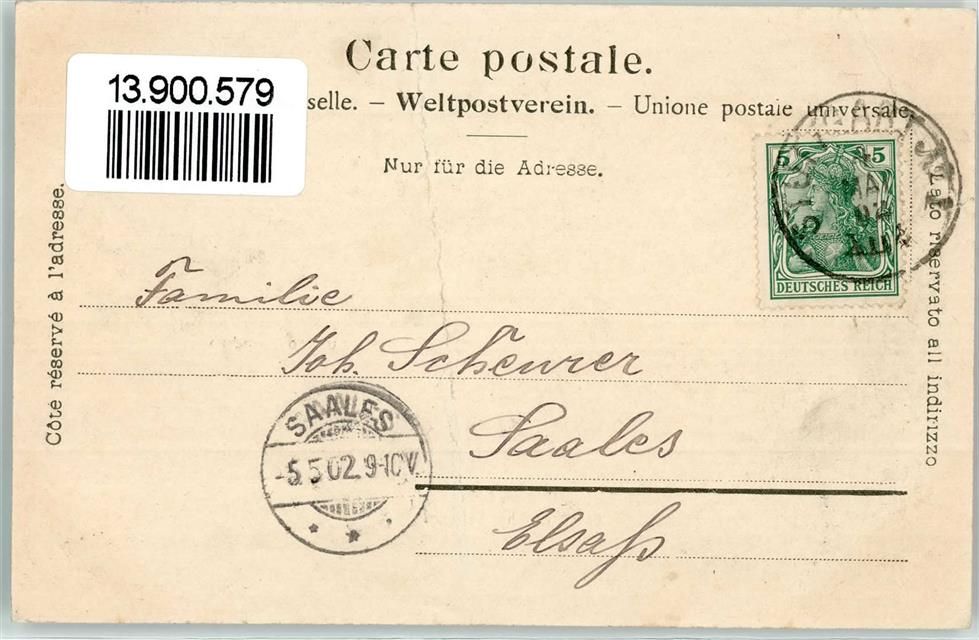 Carte postale.
13.900.579
selle. – Weltpostverein. – Unione postale universale.
Nur für die Adresse.
5 5
DEUTSCHES REICH
STUTTGART
MAI
02
Côté réservé à l'adresse.
Lato riservato all indirizzo
Familie
Joh. Scheurer
Saales
Elsaß
SAALES
5.5.02. 9-10V.